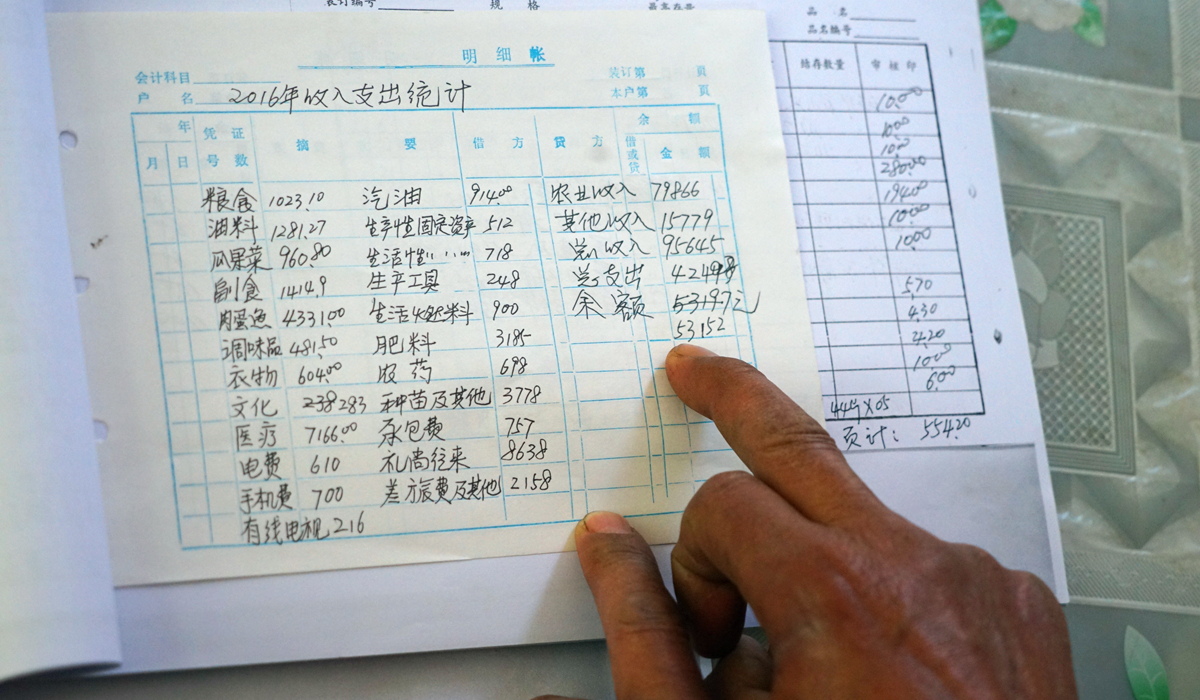 装订编号 规 格 最高存量
品 名
品名编号
明 细 帐
会计科目
装订第 頁
户 名 2016年收入支出统计
本户第 頁
年 凭 证 摘 要 借 方 贷 方 借或贷 余 额
月 日 号 数 金 额
粮食 1023.10 汽油 914.00 农业收入 79866
油料 1281.27 生产性固定资产 512 其他收入 15779
瓜果菜 960.80 生活性〃 〃 718 总收入 95645
副食 1414.9 生产工具 248 总支出 42498
肉蛋鱼 4331.00 生活燃料 900 余额 53197元
调味品 481.50 肥料 3185 53152
衣物 604.00 农药 698
文化 283 种苗及其他 3778
医疗 7166.00 承包费 757
电费 610 礼尚往来 8638
手机费 700 差旅费及其他 2158
有线电视 216
结存数量 审核印
10.00
10.00
10.00
280.00
194.00
10.00
10.00
5.70
4.30
4.20
10.00
6.00
页计: 554.20